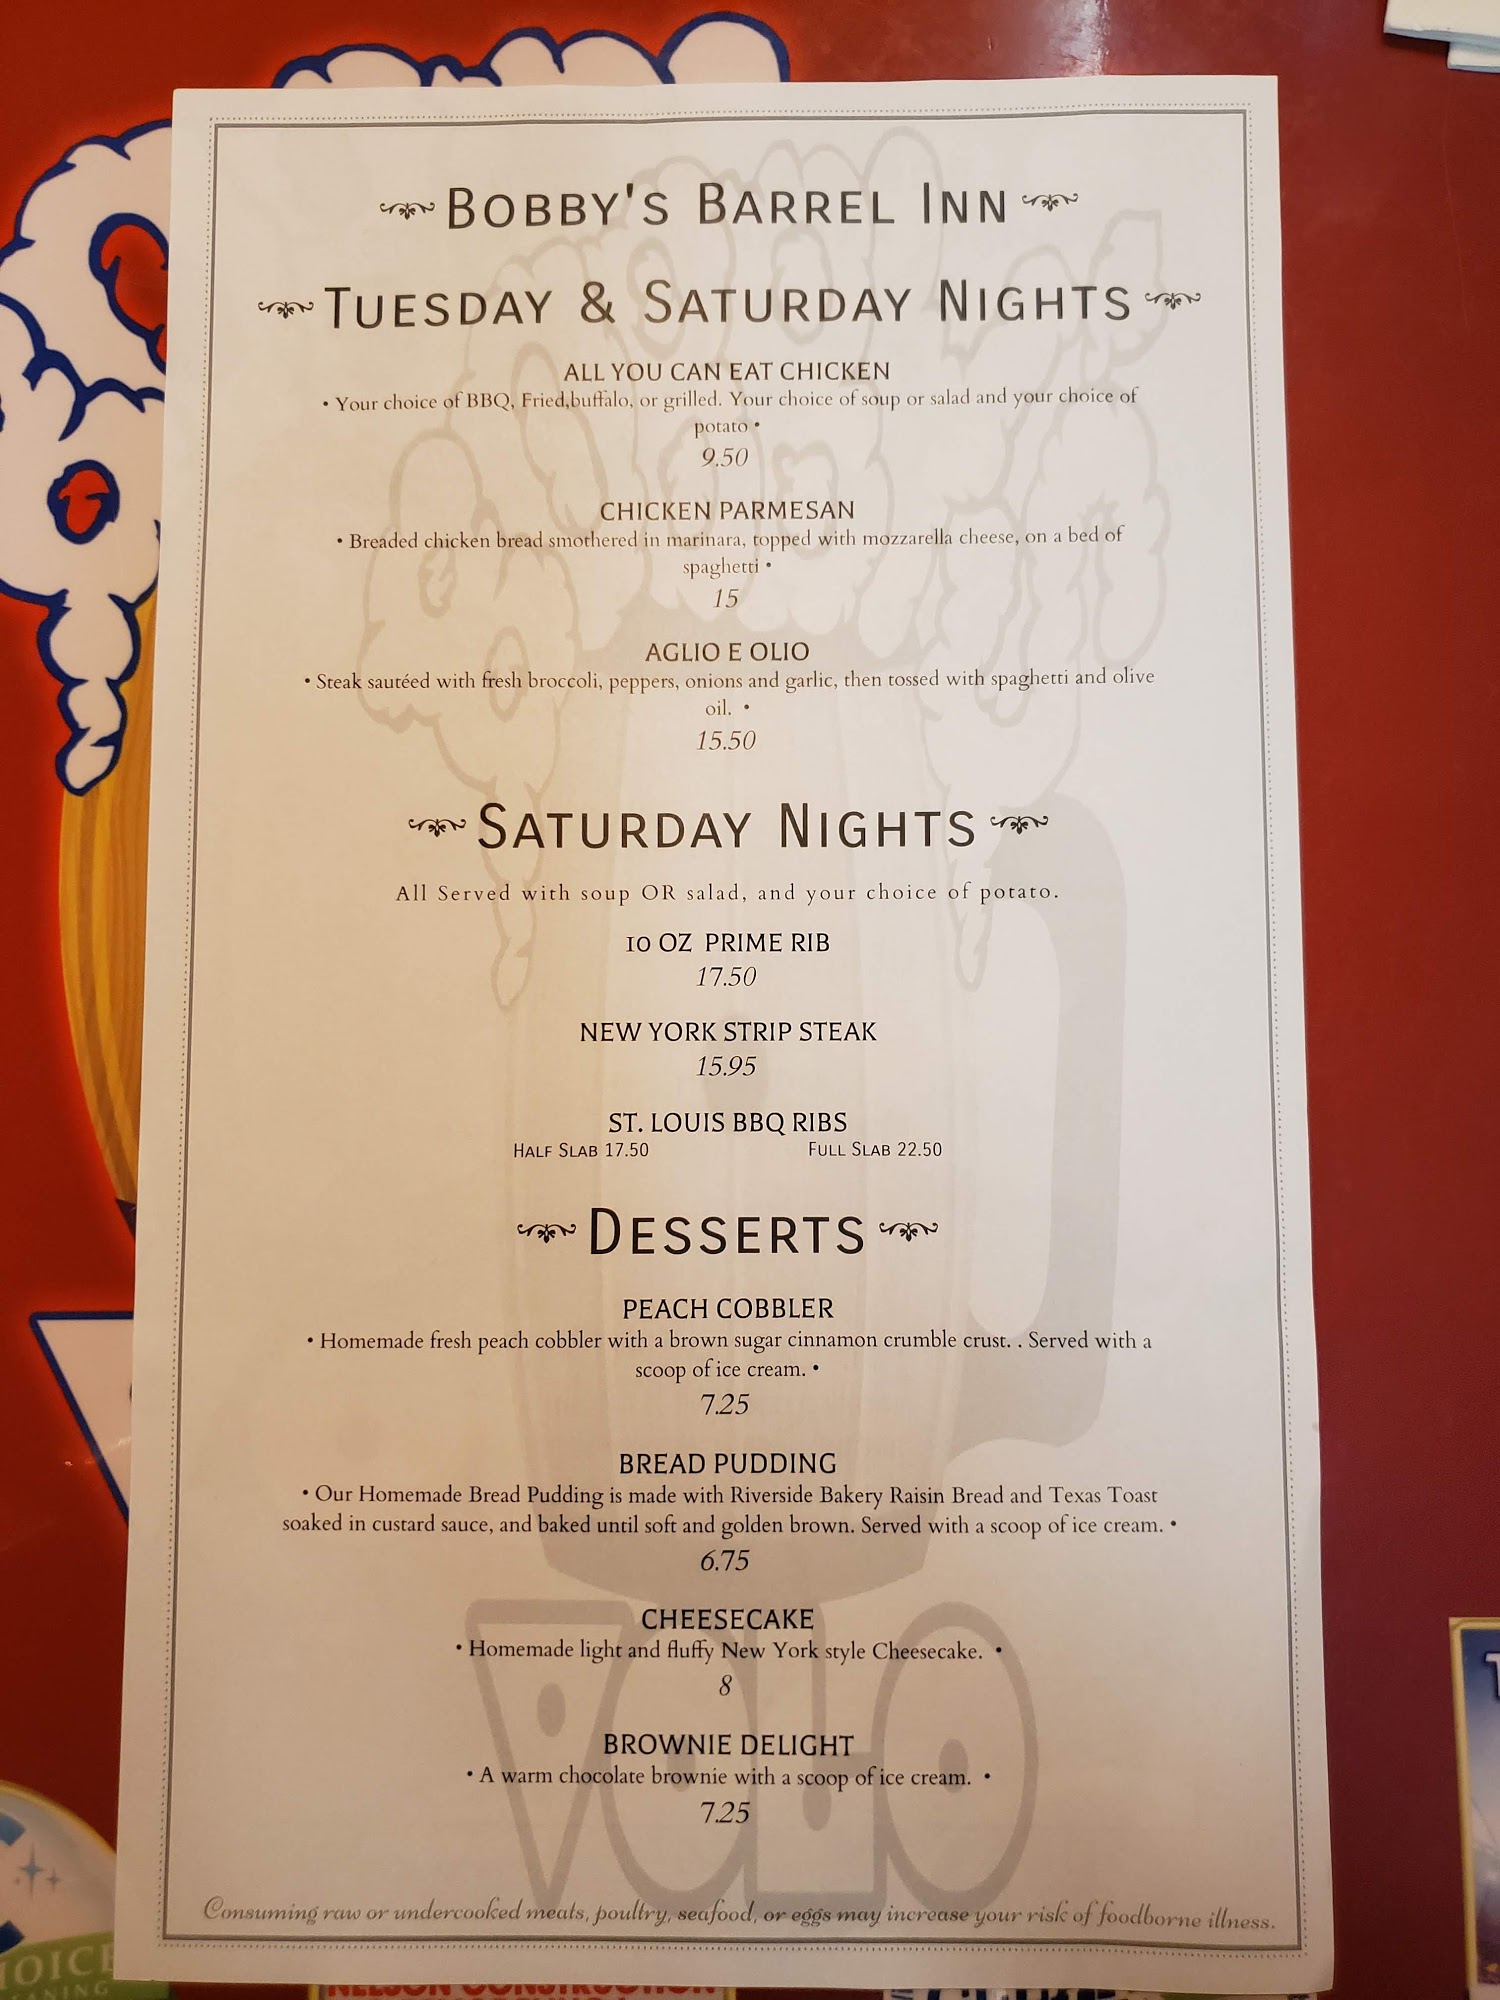 BOBBY'S BARREL INN
TUESDAY & SATURDAY NIGHTS
ALL YOU CAN EAT CHICKEN
• Your choice of BBQ, Fried,buffalo, or grilled. Your choice of soup or salad and your choice of
potato •
9.50
CHICKEN PARMESAN
• Breaded chicken bread smothered in marinara, topped with mozzarella cheese, on a bed of
spaghetti •
15
AGLIO E OLIO
• Steak sautéed with fresh broccoli, peppers, onions and garlic, then tossed with spaghetti and olive
oil. •
15.50
SATURDAY NIGHTS
All Served with soup OR salad, and your choice of potato.
10 OZ PRIME RIB
17.50
NEW YORK STRIP STEAK
15.95
ST. LOUIS BBQ RIBS
HALF SLAB 17.50 FULL SLAB 22.50
DESSERTS
PEACH COBBLER
• Homemade fresh peach cobbler with a brown sugar cinnamon crumble crust. . Served with a
scoop of ice cream. •
7.25
BREAD PUDDING
• Our Homemade Bread Pudding is made with Riverside Bakery Raisin Bread and Texas Toast
soaked in custard sauce, and baked until soft and golden brown. Served with a scoop of ice cream. •
6.75
CHEESECAKE
• Homemade light and fluffy New York style Cheesecake. •
8
BROWNIE DELIGHT
• A warm chocolate brownie with a scoop of ice cream. •
7.25
VOLO
Consuming raw or undercooked meats, poultry, seafood, or eggs may increase your risk of foodborne illness.
NELSON CONSTRUCTION